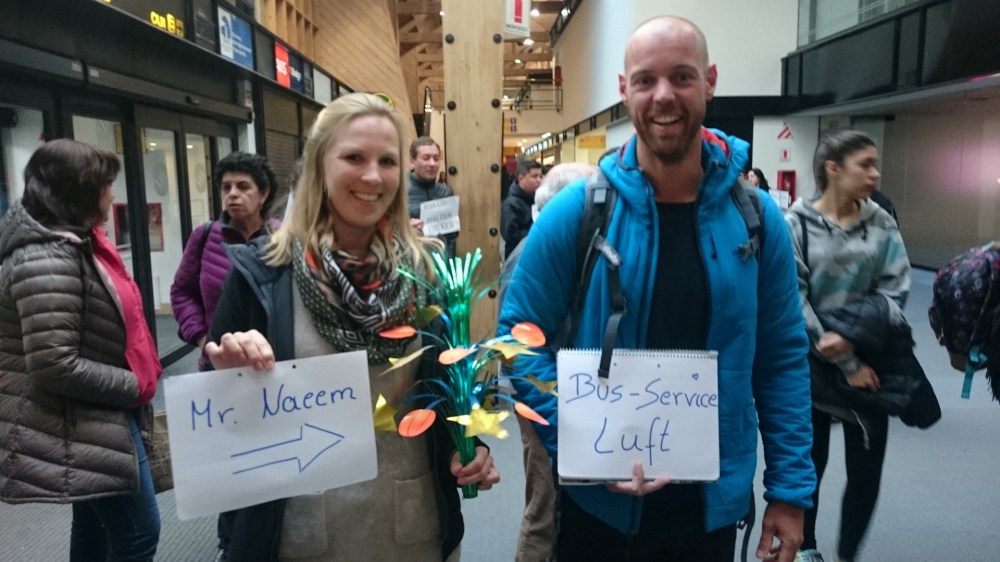 Mr. Naeem
Bus-Service
Luft